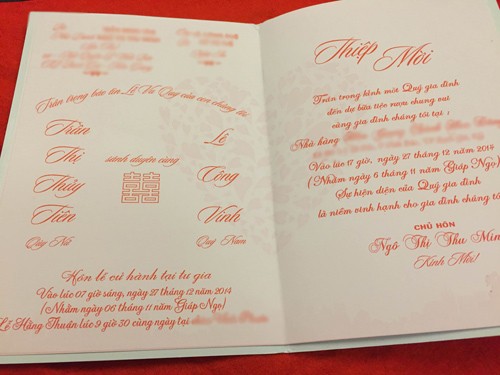 Trân trọng báo tin Lễ Vu Quy của con chúng tôi
Trần
Thị
Thủy
Tiên
Quý Nữ
sánh duyên cùng
囍
Lê
Công
Vinh
Quý Nam
Hôn lễ cử hành tại tư gia
Vào lúc 07 giờ sáng, ngày 27 tháng 12 năm 2014
(Nhằm ngày 06 tháng 11 năm Giáp Ngọ)
Lễ Hằng Thuận lúc 9 giờ 30 cùng ngày tại
Thiệp Mời
Trân trọng kính mời Quý gia đình
đến dự bữa tiệc rượu chung vui
cùng gia đình chúng tôi tại :
Nhà hàng
Vào lúc 17 giờ, ngày 27 tháng 12 năm 2014
(Nhằm ngày 6 tháng 11 năm Giáp Ngọ)
Sự hiện diện của Quý gia đình
là niềm vinh hạnh cho gia đình chúng tô
CHỦ HÔN
Ngô Thị Thu Min
Kính Mời!